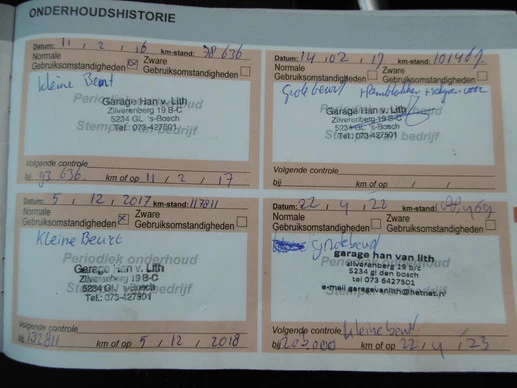 ONDERHOUDSHISTORIE
Datum: 11 / 2 / 16 km-stand: 78 636
Normale Gebruiksomstandigheden ☒ Zware Gebruiksomstandigheden ☐
kleine Beurt
Periodiek onderhoud
Garage Han v. Lith
Zilverenberg 19 B-C
5234 GL 's-Bosch
Tel.: 073-427501
Stempel bedrijf
Volgende controle
bij 93 636 km of op 11 / 2 / 17
Datum: 14 / 02 / 17 km-stand:
Normale Gebruiksomstandigheden ☐ Zware Gebruiksomstandigheden ☐
Grote beurt
Periodiek onderhoud
Garage Han v. Lith
Zilverenberg 19 B-C
5234 GL 's-Bosch
Tel.: 073-427501
Stempel bedrijf
Volgende controle
bij km of op / /
Datum: 5 / 12 / 2017 km-stand: 117811
Normale Gebruiksomstandigheden ☒ Zware Gebruiksomstandigheden ☐
Kleine Beurt
Periodiek onderhoud
Garage Han v. Lith
Zilverenberg 19 B-C
5234 GL 's-Bosch
Tel.: 073-427501
Stempel bedrijf
Volgende controle
bij 132811 km of op 5 / 12 / 2018
Datum: 22 / 4 / 22 km-stand:
Normale Gebruiksomstandigheden ☐ Zware Gebruiksomstandigheden ☐
grote beurt
Periodiek onderhoud
garage han van lith
zilverenberg 19 b/c
5234 gl den bosch
tel 073 6427501
e-mail garagevanlith@hetnet.nl
Stempel bedrijf
Volgende controle kleine beurt
bij 202000 km of op 22 / 4 / 23